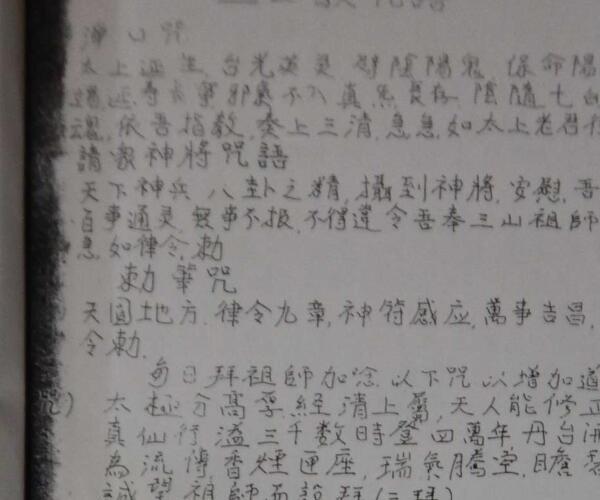 淨口咒
太上延生,台光英灵,辟陰陽鬼,保命陽
寿長寧邪氣不入真炁長存,陰隨七白
魂,依吾指教,奏上三清,急急如太上老君律
請眾神將咒語
天下神兵,八卦之精,攝到神將,安慰,吾
百事通灵,無事不报,不得違令吾奉三山祖師
急如律令,勅
勅筆咒
天圓地方,律令九章,神符感应,萬事吉昌,
令勅.
每日拜祖師加念,以下咒以增加道
咒)太極分高孚,經清上,天人能修正
真仙行溢三千数時登四萬年,丹台
為流傳香煙匝座,瑞氣騰空,瞻
誠望祖師而設拜(三拜)